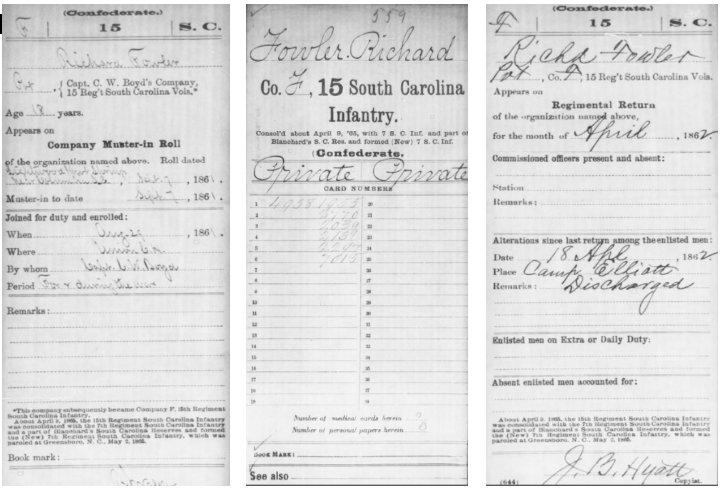 (Confederate.)
F 15 S. C.
Richard Fowler
Pvt, Capt. C. W. Boyd's Company,
15 Reg't South Carolina Vols.*
Age 18 years.
Appears on
Company Muster-in Roll
of the organization named above. Roll dated
Sept. 7, 1861.
Muster-in to date Sept. 7, 1861.
Joined for duty and enrolled:
When Aug. 29, 1861.
Where Union C.H.
By whom Capt. C. W. Boyd
Period For & during the war
Remarks:
*This company subsequently became Company F, 15th Regiment
South Carolina Infantry.
About April 9, 1865, the 15th Regiment South Carolina Infantry
was consolidated with the 7th Regiment South Carolina Infantry
and a part of Blanchard's South Carolina Reserves and formed
the (New) 7th Regiment South Carolina Infantry, which was
paroled at Greensboro, N. C., May 2, 1865.
Book mark:
559
Fowler, Richard
Co. F, 15 South Carolina
Infantry.
Consol'd about April 9, '65, with 7 S. C. Inf. and part of
Blanchard's S. C. Res. and formed (New) 7 S. C. Inf.
(Confederate.)
Private Private
CARD NUMBERS
1 49581955 20
2 21
3 22
4 23
5 24
6 7015 25
7 26
8 27
9 28
10 29
11 30
12 31
13 32
14 33
15 34
16 35
17 36
18 37
19 38
Number of medical cards herein 0
Number of personal papers herein 0
BOOK MARK:
See also
(Confederate.)
F 15 S. C.
Richd Fowler
Pvt, Co. F, 15 Reg't South Carolina Vols.
Appears on
Regimental Return
of the organization named above,
for the month of April, 1862.
Commissioned officers present and absent:
Station
Remarks:
Alterations since last return among the enlisted men:
Date 18 Apl, 1862.
Place Camp Elliott
Remarks: Discharged
Enlisted men on Extra or Daily Duty:
Absent enlisted men accounted for:
About April 9, 1865, the 15th Regiment South Carolina Infantry
was consolidated with the 7th Regiment South Carolina Infantry
and a part of Blanchard's South Carolina Reserves and formed
the (New) 7th Regiment South Carolina Infantry, which was
paroled at Greensboro, N. C., May 2, 1865.
J. B. Hyatt
(644) Copyist.